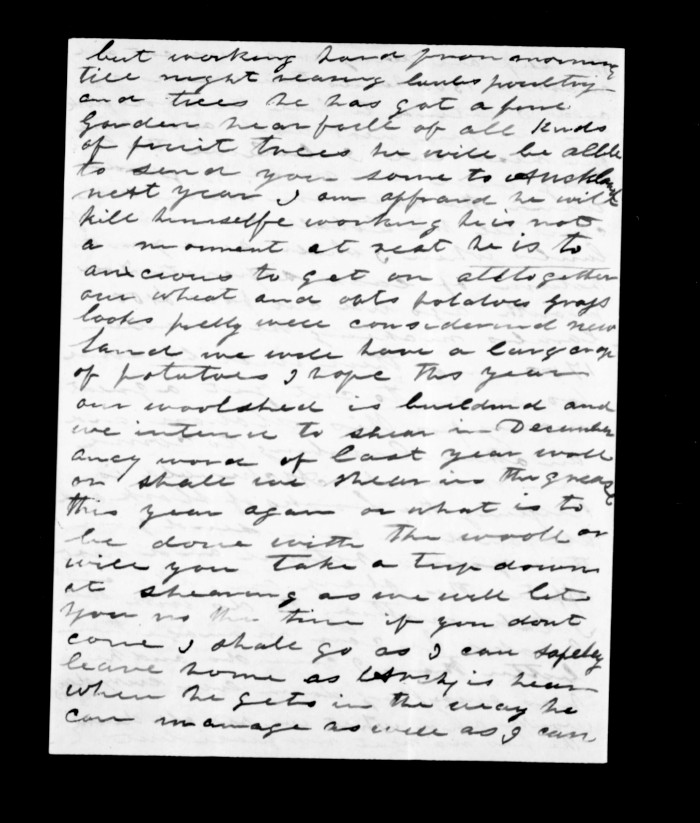 but working hard from morning
till night rearing lambs poultry
and trees he has got a fine
Garden hear full of all kinds
of fruit trees he will be allble
to send you some to Auckland
next year I am affraid he will
kill himselfe working he is not
a momment at reat he is to
ancious to get on alltogether
our wheat and oats potatoes grass
looks pretty well considerind new
land we will have a larg crop
of potatoes I hope this year
our woolshed is buildind and
we intend to shear in December
aney word of last year wool
or shall we shear in the grease
this year again or what is to
be done with the wooll or
will you take a trip down
at shearing as we will let
you no the time if you dont
come I shall go as I can safely
leave home as Archy is hear
when he gets in the way he
can manage as well as I can